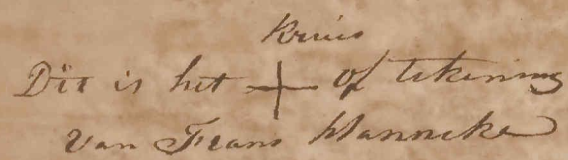 Kruis
Dit is het + of tekening
Van Frans Hanneke